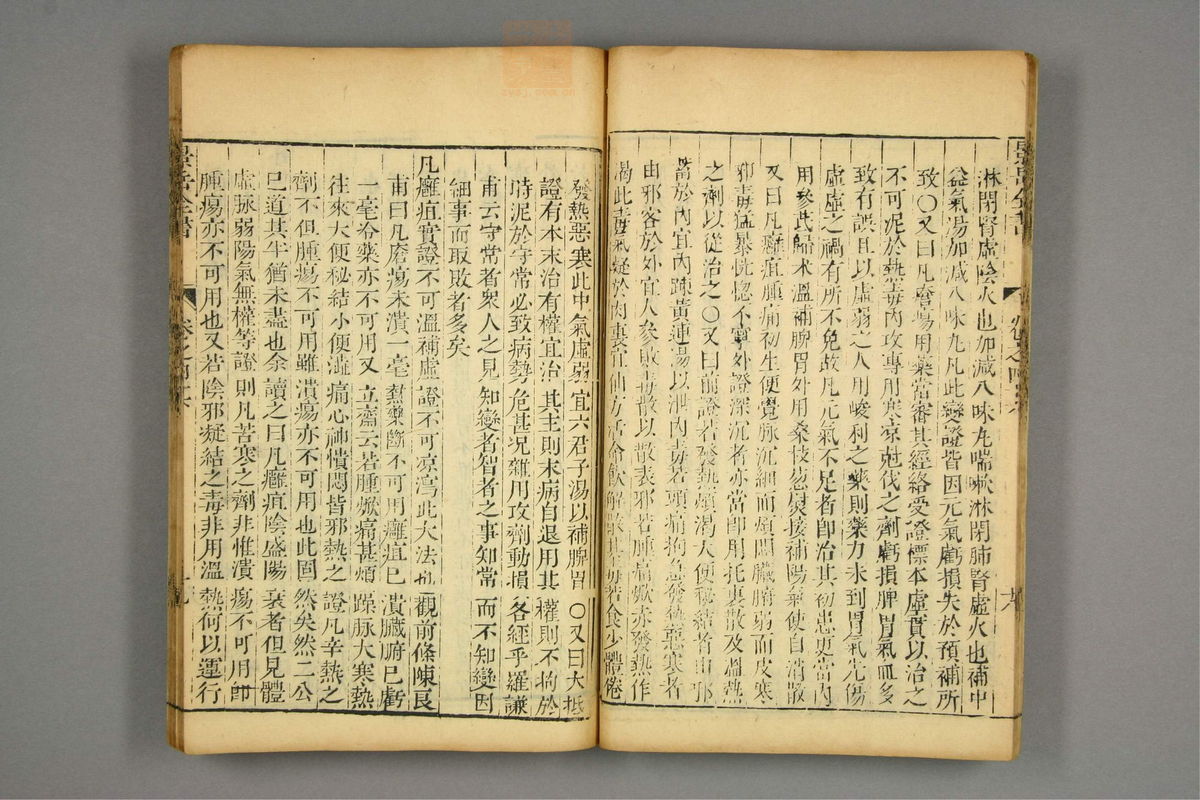 淋閉腎虛陰火也加減八味丸喘嗽淋閉肺腎虛火也補中
益氣湯加減八味丸凡此變證皆因元氣虧損失於預補所
致〇又曰凡瘡瘍用藥當審其經絡受證標本虛實以治之
不可泥於熱毒內攻專用寒凉尅伐之劑虧損脾胃氣血多
致有誤且以虛弱之人用峻利之藥則藥力未到胃氣先傷
虛虛之禍有所不免故凡元氣不足者卽治其初患更當內
用參芪歸术溫補脾胃外用桑枝葱熨接補陽氣使自消散
又曰凡癰疽腫痛初生便覺脉沉細而煩悶臟腑弱而皮寒
邪毒猛暴恍惚不寧外證深沉者亦當卽用托裏散及溫熱
之劑以從治之〇又曰前證若發熱煩渴大便秘結者由邪
蓄於內宜內踈黃連湯以泄內毒若頭痛拘急發熱惡寒者
由邪客於外宜人參敗毒散以散表邪若腫痛焮赤發熱作
渴此毒氣凝於肉裏宜仙方活命飲解散其毒若食少體倦
發熱惡寒此中氣虛弱宜六君子湯以補脾胃〇又曰大抵
證有本末治有權宜治其主則末病自退用其權則不拘於
時泥於守常必致病勢危甚况雜用攻劑動損各經乎羅謙
甫云守常者衆人之見知變者智者之事知常而不知變因
細事而取敗者多矣
凡癰疽實證不可溫補虛證不可凉瀉此大法也觀前條陳良
甫曰凡瘡瘍未潰一毫熱藥斷不可用癰疽已潰臟腑已虧
一毫冷藥亦不可用又立齋云若腫焮痛甚煩躁脉大寒熱
往來大便秘結小便澁痛心神憒悶皆邪熱之證凡辛熱之
劑不但腫瘍不可用雖潰瘍亦不可用也此固然矣然二公
已道其半猶未盡也余讀之曰凡癰疽陰盛陽衰者但見體
虛脉弱陽氣無權等證則凡苦寒之劑非惟潰瘍不可用卽
腫瘍亦不可用也又若陰邪凝結之毒非用溫熱何以運行
景岳全書
十九